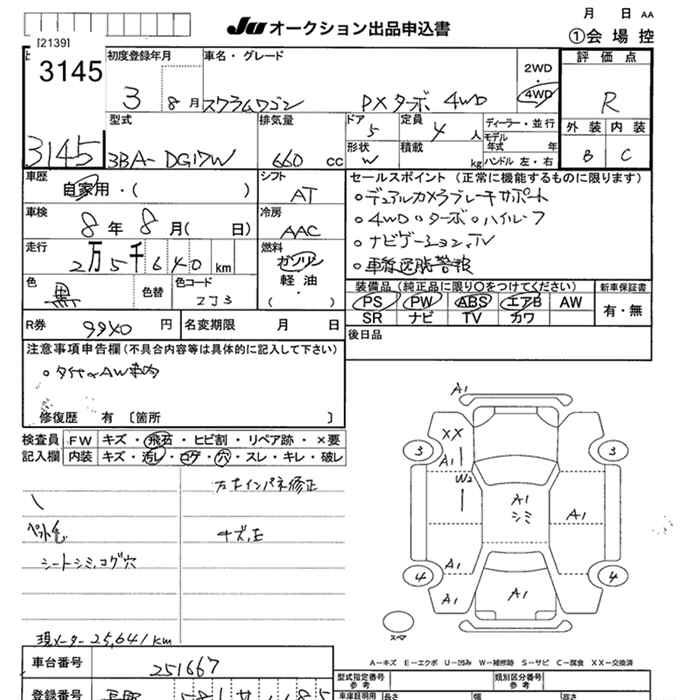 月 日 AA
JU オークション出品申込書
①会場控
[2139]
3145
3145
初度登録年月
3 8月
車名・グレード
スクラムワゴン PXターボ 4WD
2WD
・
4WD
評価点
R
外装 内装
B C
型式
3BA-DG17W
排気量
660 cc
ドア
5
定員
4人
形状
W
積載
kg
ディーラー・並行
モデル
年式 年
ハンドル 左・右
車歴
自家用・( )
シフト
AT
車検
8年 8月( 日)
冷房
AAC
走行
2万5千640 km
燃料
ガソリン
軽油
( )
色
黒
色替
色コード
ZJ3
セールスポイント (正常に機能するものに限ります)
○デュアルカメラブレーキサポート
○4WD○ターボ○ハイルーフ
○ナビゲーション,TV
○車線逸脱警報
装備品 (純正品に限り○をつけてください)
PS PW ABS エアB AW
SR ナビ TV カワ
新車保証書
有・無
R券 9940 円
名変期限 月 日
後日品
注意事項申告欄 (不具合内容等は具体的に記入して下さい)
修復歴 有 〔箇所 〕
検査員 FW キズ・飛石・ヒビ割・リペア跡・×要
記入欄 内装 キズ・汚レ・コゲ・穴・スレ・キレ・破レ
インパネ修正
シートシミ,コゲ穴
現メーター25,641km
A1
XX
A1
W2
A1
シミ
A1
A1
A1
A1
3
3
4
4
スペア
A-キズ E-エクボ U-凹み W-補修跡 S-サビ C-腐食 XX-交換済
車台番号 251667
型式指定番号
参考
類別区分番号
参考
登録番号
車庫証明用 長さ 幅 高さ